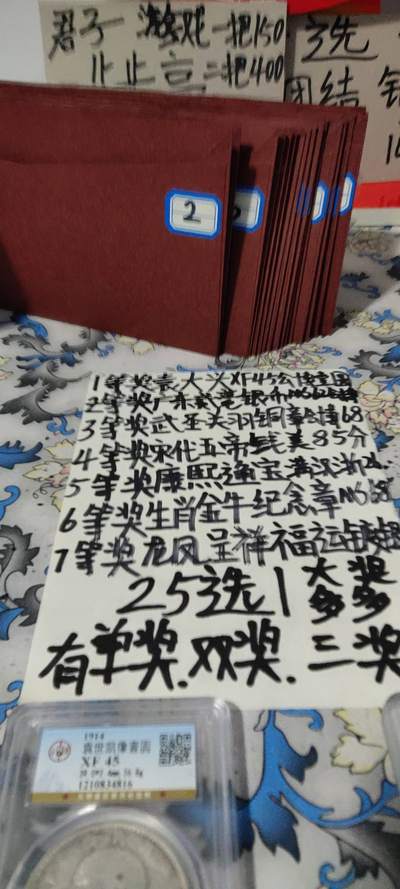 君子一游戏一把150
止止言二把400
选
团结
2
1等奖袁大头XF45公博
2等奖广东贰毫银币MS62
3等奖武圣关羽铜章公博68
4等奖宋代五帝钱美85分
5等奖康熙通宝满汉浙
6等奖生肖金牛纪念章MS68
7等奖龙凤呈祥福运
25选1
大奖
多多
有单奖.双奖.三奖
1914
袁世凯像壹圆
XF 45
1210834816